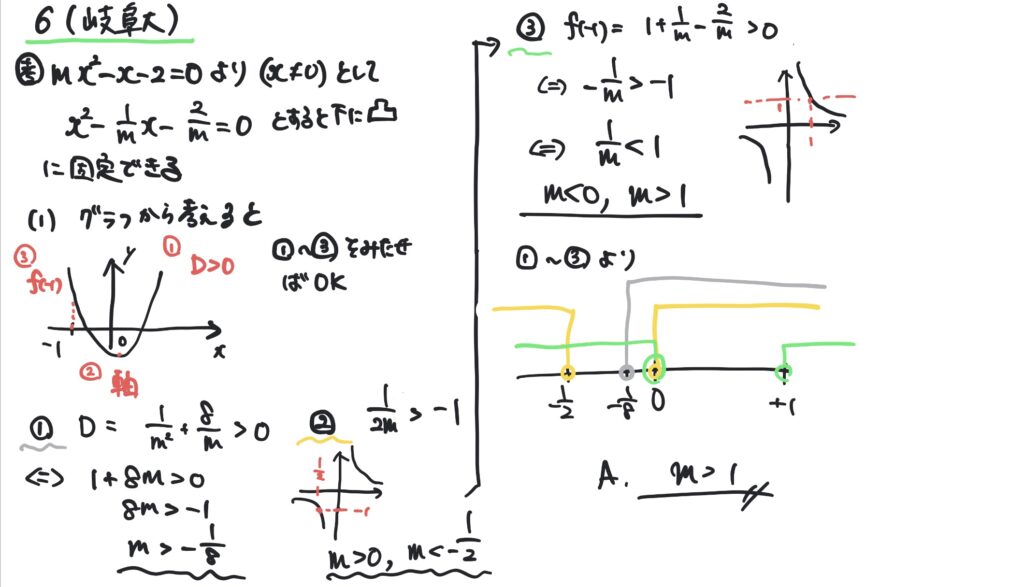 6 (岐阜大)
mx²-x-2=0 より (x≠0) として
x²-\frac{1}{m}x-\frac{2}{m}=0 とすると下に凸
に固定できる
(1) グラフから考えると
③ f(-1)
y
① D>0
-1
0
x
② 軸
①〜③をみたせ
ばOK
① D= \frac{1}{m²}+\frac{8}{m}>0
⇔ 1+8m>0
8m>-1
m>-\frac{1}{8}
② \frac{1}{2m}>-1
-1
m>0, m<-\frac{1}{2}
③ f(-1)= 1+\frac{1}{m}-\frac{2}{m}>0
⇔ -\frac{1}{m}>-1
⇔ \frac{1}{m}<1
1
1
m<0, m>1
①〜③より
-\frac{1}{2} -\frac{1}{8} 0 +1
A. m>1